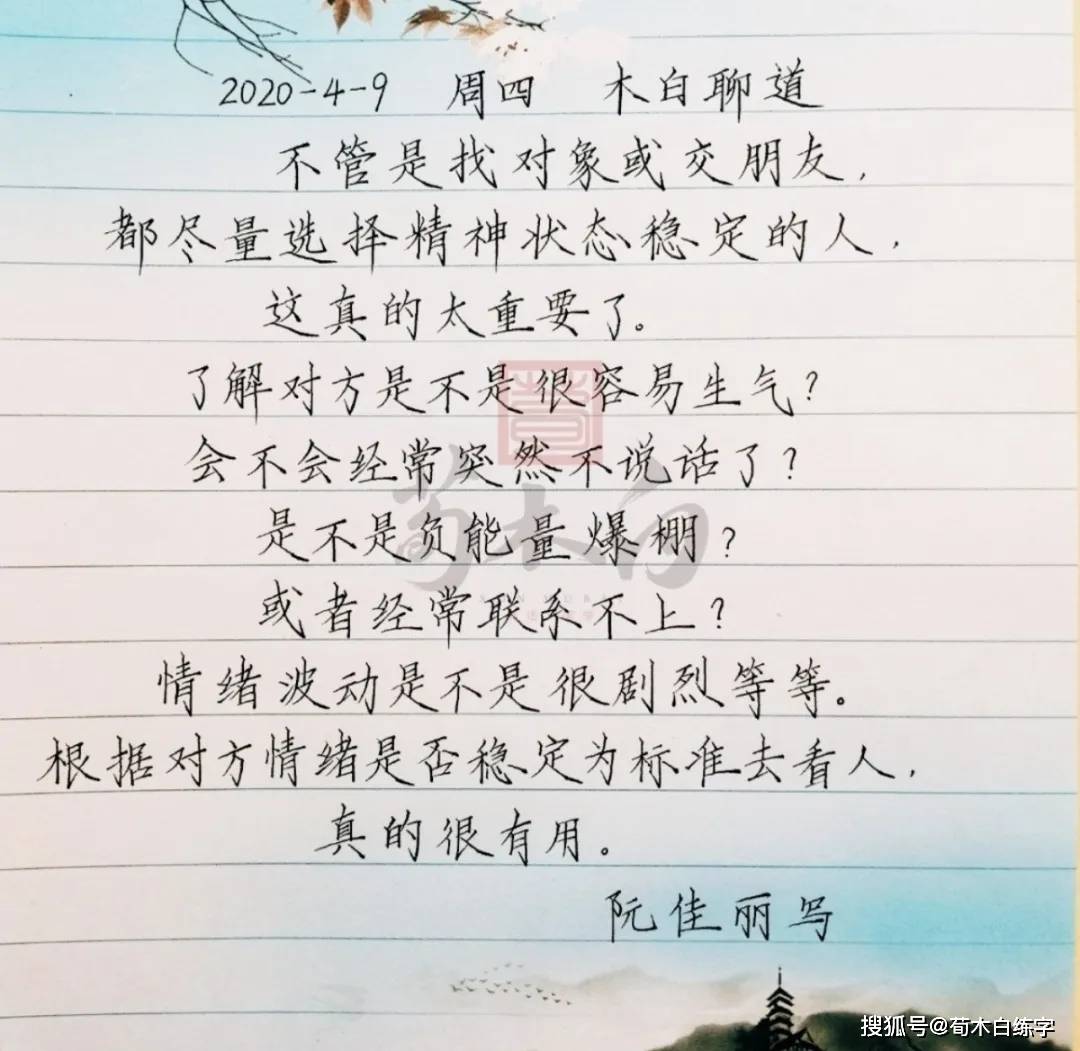 2020-4-9 周四 木白聊道
不管是找对象或交朋友,
都尽量选择精神状态稳定的人,
这真的太重要了。
了解对方是不是很容易生气?
会不会经常突然不说话了?
是不是负能量爆棚?
或者经常联系不上?
情绪波动是不是很剧烈等等。
根据对方情绪是否稳定为标准去看人,
真的很有用。
阮佳丽写
荀木白
搜狐号@荀木白练字